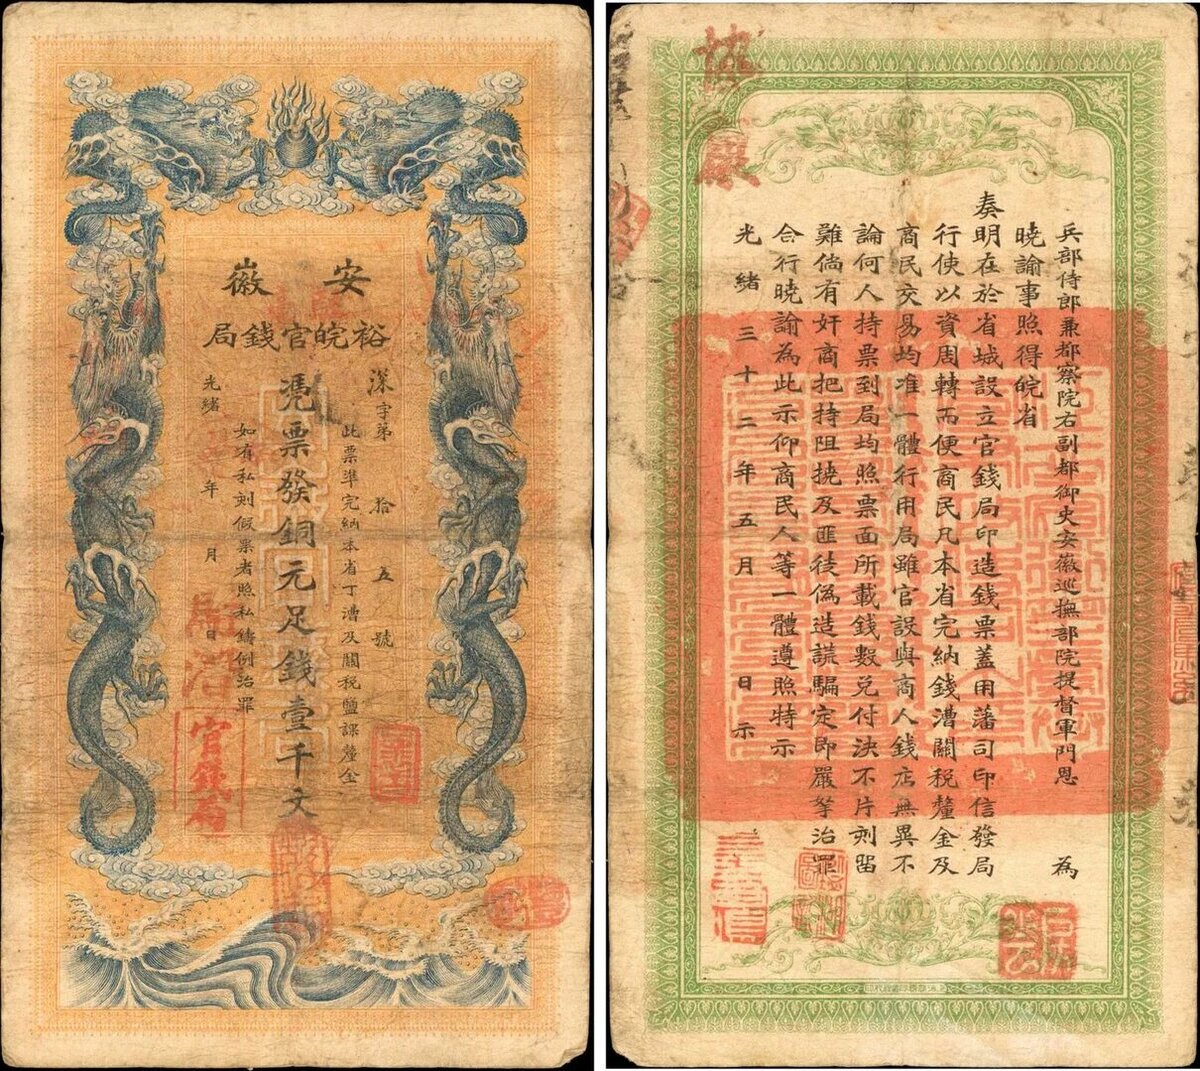 安徽
裕皖官錢局
深字第拾五號
此票準完納本省丁漕及關稅鹽課釐金
憑票發銅元足錢壹千文
如有私刻假票者照私鑄例治罪
光緒年月日
官錢局
兵部侍郎兼都察院右副都御史安徽巡撫部院提督軍門恩 為
曉諭事照得皖省
奏明在於省城設立官錢局印造錢票蓋用藩司印信發局
行使以資周轉而便商民凡本省完納錢漕關稅釐金及
商民交易均准一體行用局雖官設與商人錢店無異不
論何人持票到局均照票面所載錢數兌付決不片刻留
難倘有奸商把持阻撓及匪徒偽造謊騙定即嚴拏治罪
合行曉諭為此示仰商民人等一體遵照特示
光緒三十二年五月 日示